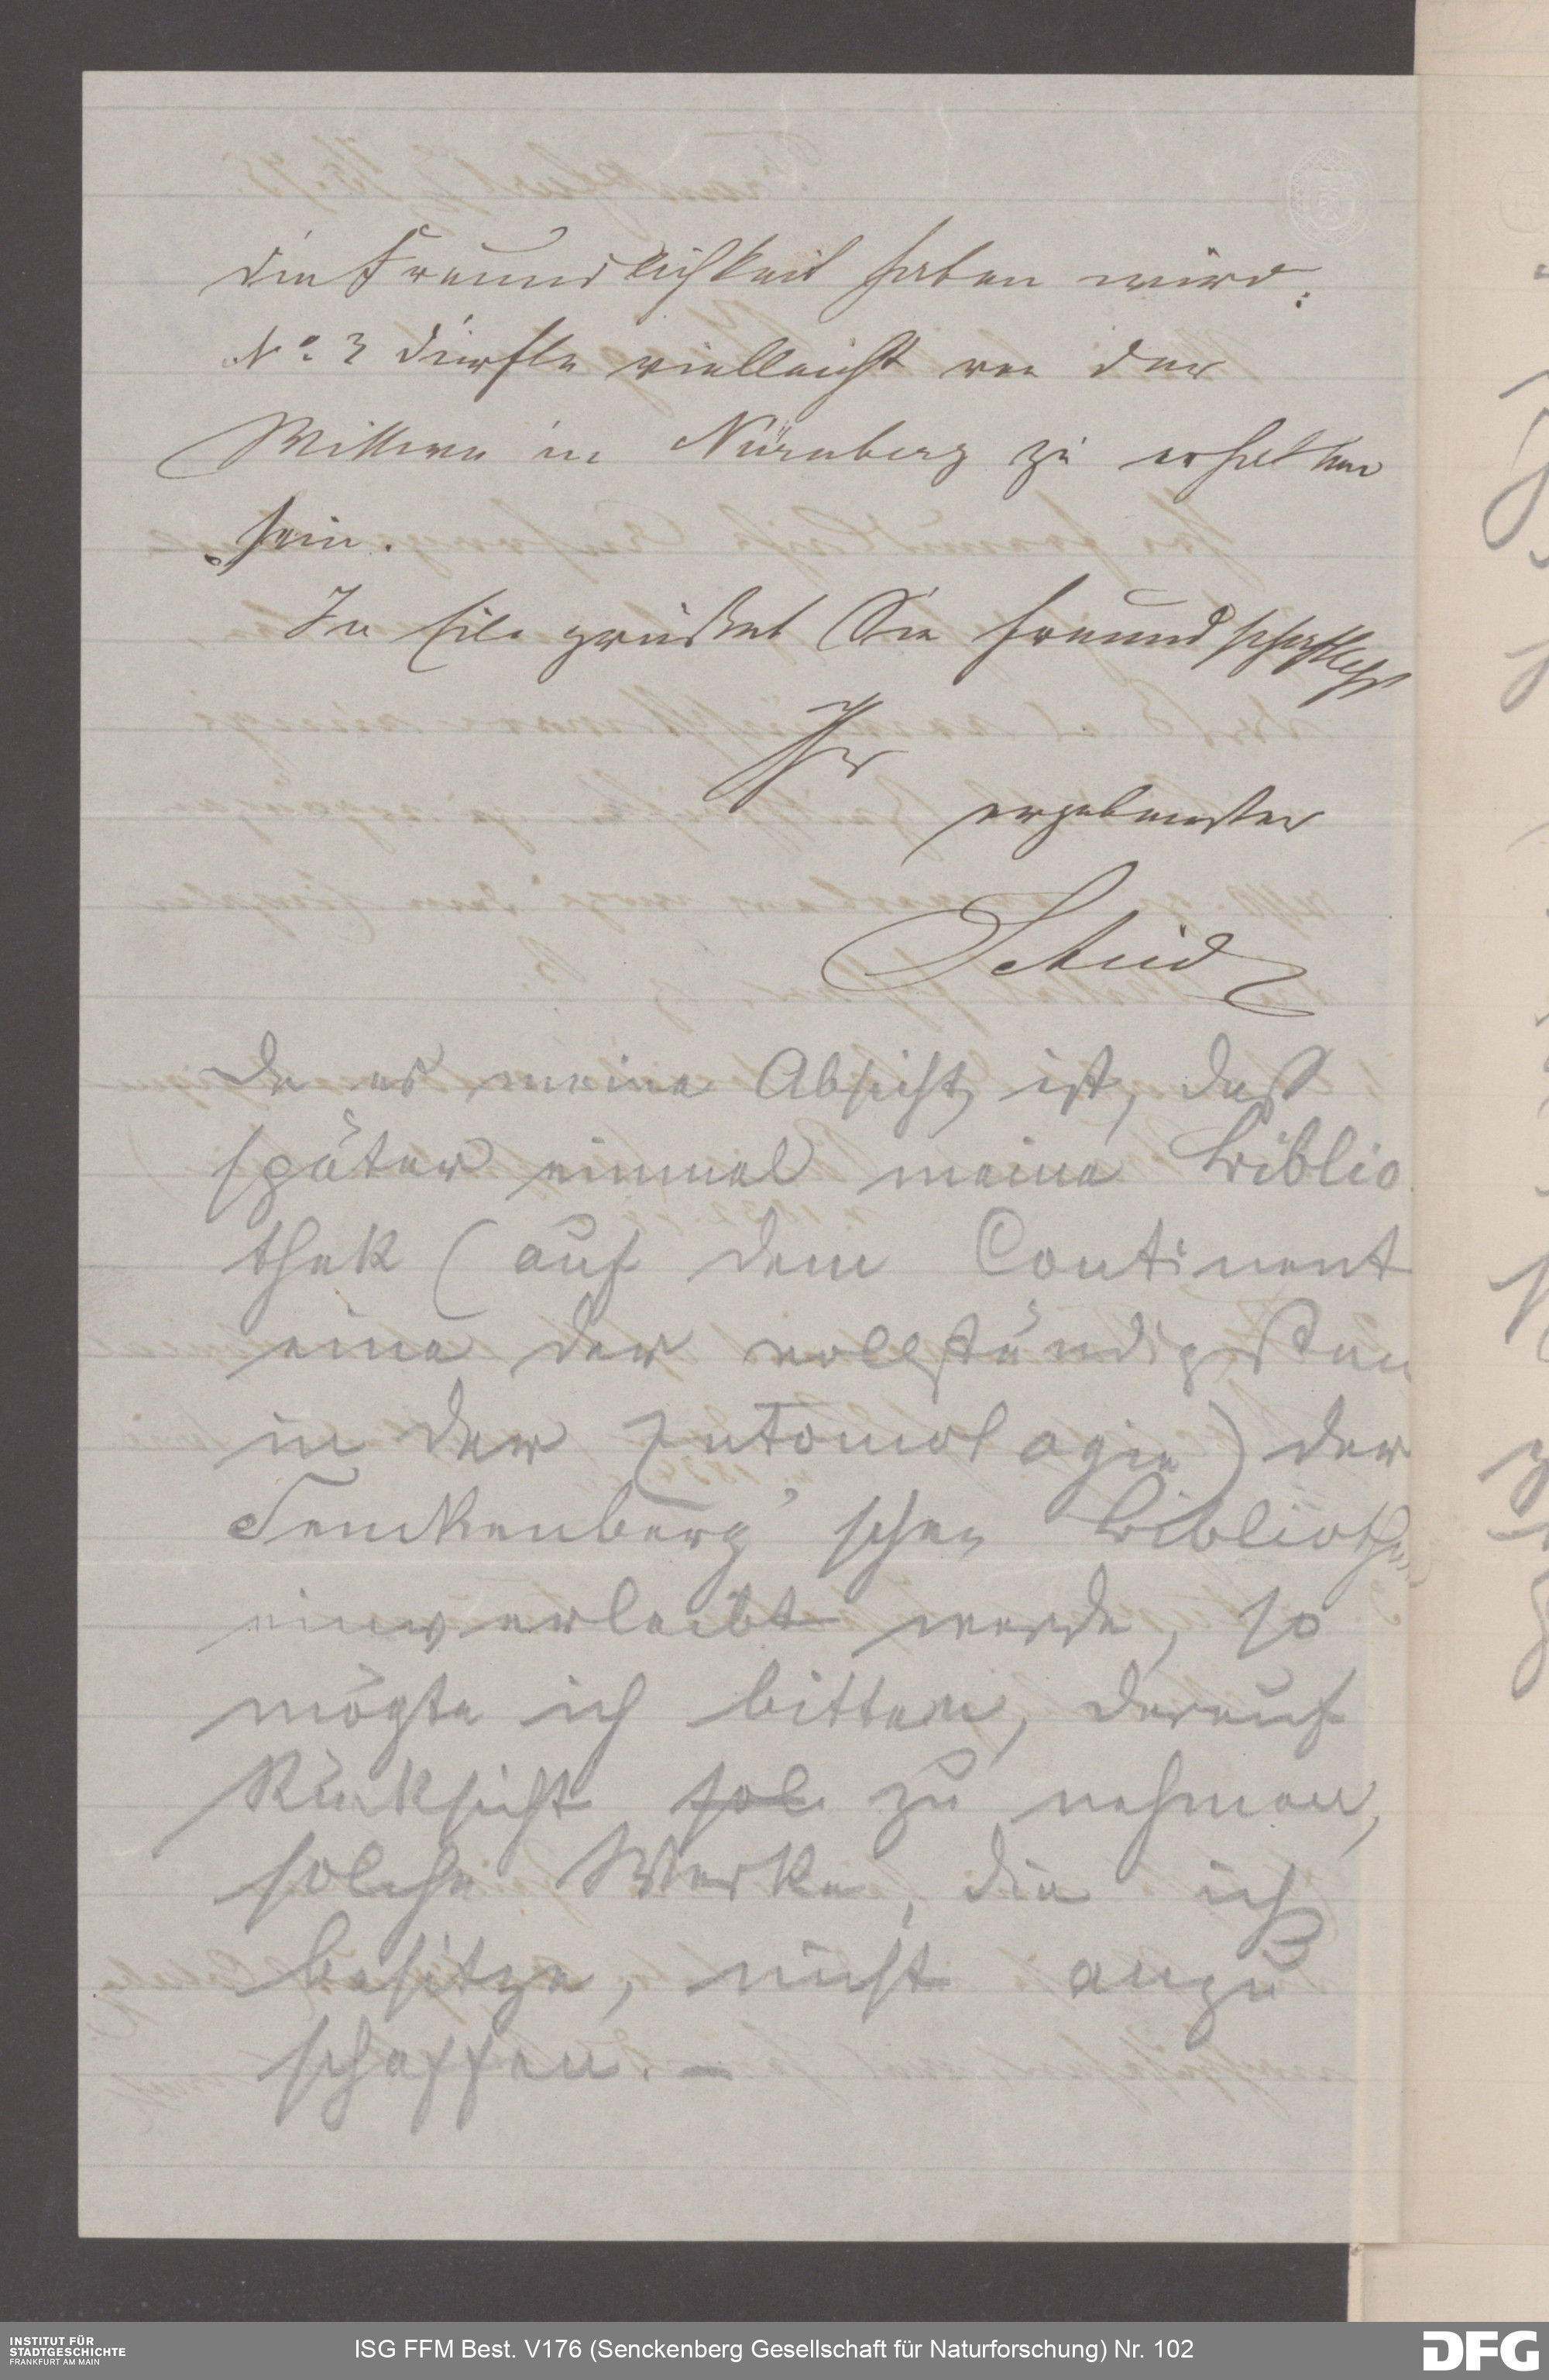 die Freundlichkeit haben wird.
No. 3 dürfte vielleicht von der
Wittwe in Nürnberg zu erhalten
sein.
In Eile grüßet Sie freundschaftlichst
Ihr
ergebenster
Da es meine Absicht ist, daß
später einmal meine Biblio
thek (auf dem Continent
eine der vollständigsten
in der Entomologie) der
Senckenberg'schen Bibliothek
einverleibt werde, so
mögte ich bitten, darauf
Rücksicht sol zu nehmen,
solche Werke, die ich
besitze, nicht anzu
schaffen. —
INSTITUT FÜR
STADTGESCHICHTE
FRANKFURT AM MAIN
ISG FFM Best. V176 (Senckenberg Gesellschaft für Naturforschung) Nr. 102
DFG